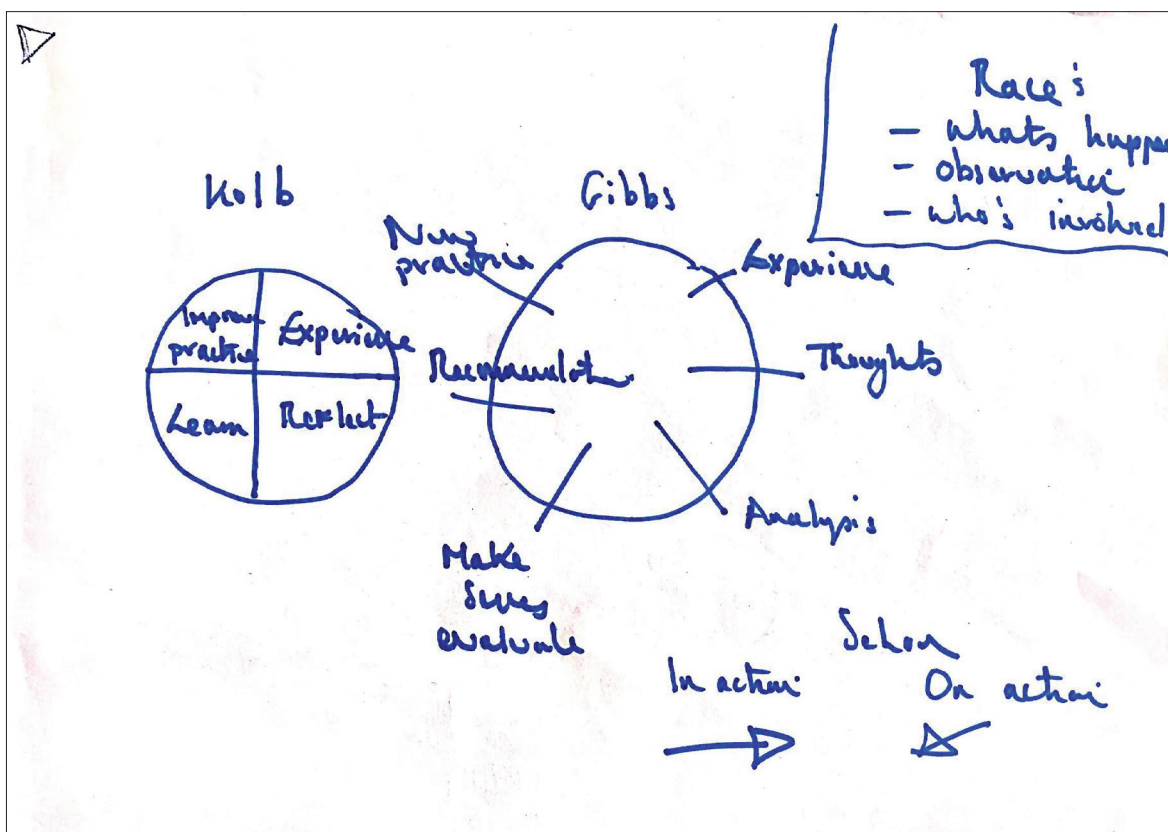 Race's
- whats happe
- observation
- who's involved
Kolb
Improve
practice
Experience
Learn
Reflect
Gibbs
New
practice
Experience
Thoughts
Analysis
Make
evaluate
Schon
In action
On action